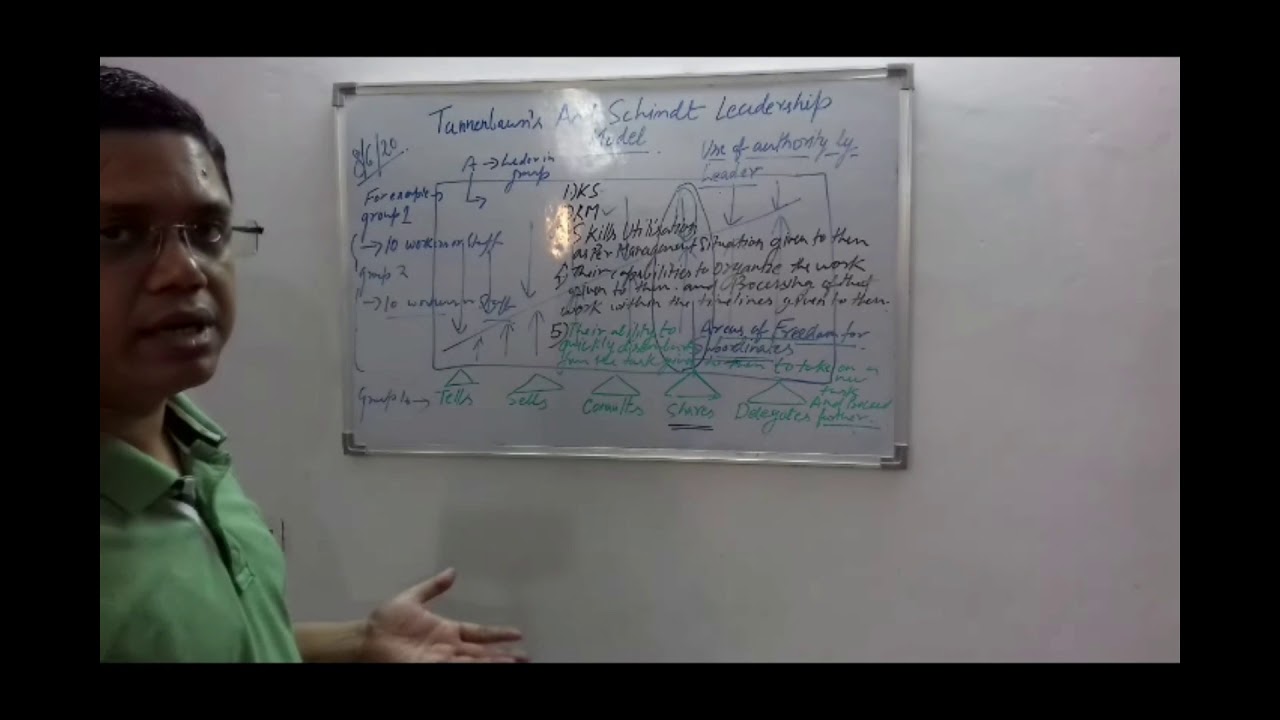 Tannerbaum's And Schindt Leadership
Model
8/6/20
A → Leader in
group
Use of authority by
Leader
For example
group 1
→ 10 working Staff
group 2
→ 10 working Staff
1) KS
RM
Skills Utilisation
as Per Management Situation given to them
Their capabilities to organize the work
given to them. and Processing of that
work within the timelines given to them.
5) Their ability to
quickly
from the task
to them to take on a
new
task
And
further.
Areas of Freedom for
Tells
Sells
Consults
Shares
Delegates